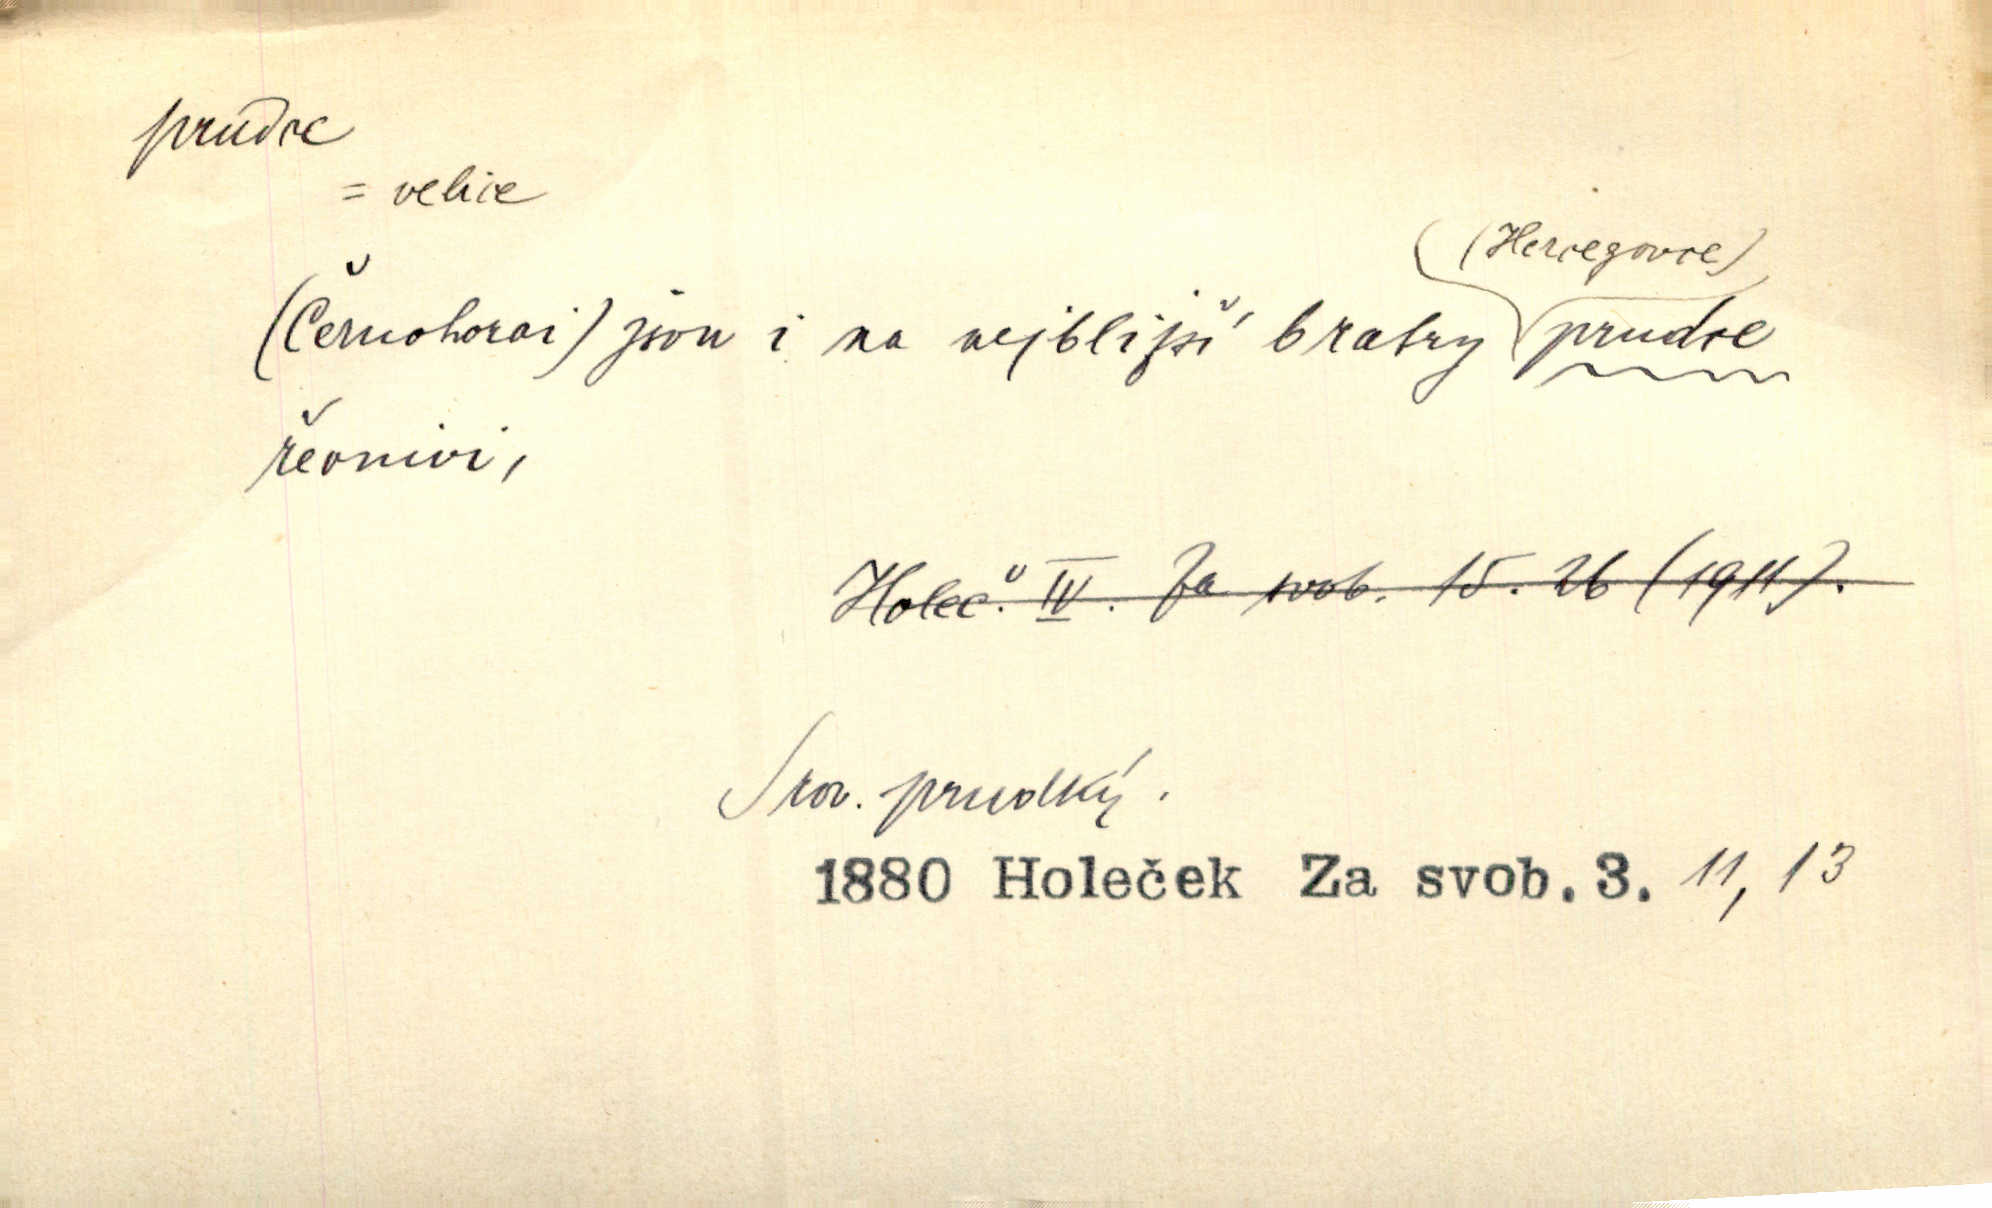 prudce
= velice
(Hercegovce)
(Černohorci) jsou i na nejbližší bratry prudce
řevnivi,
Holeč. IV. Za svob. 15. 26 (1911).
Srov. prudký.
1880 Holeček Za svob. 3. 11, 13